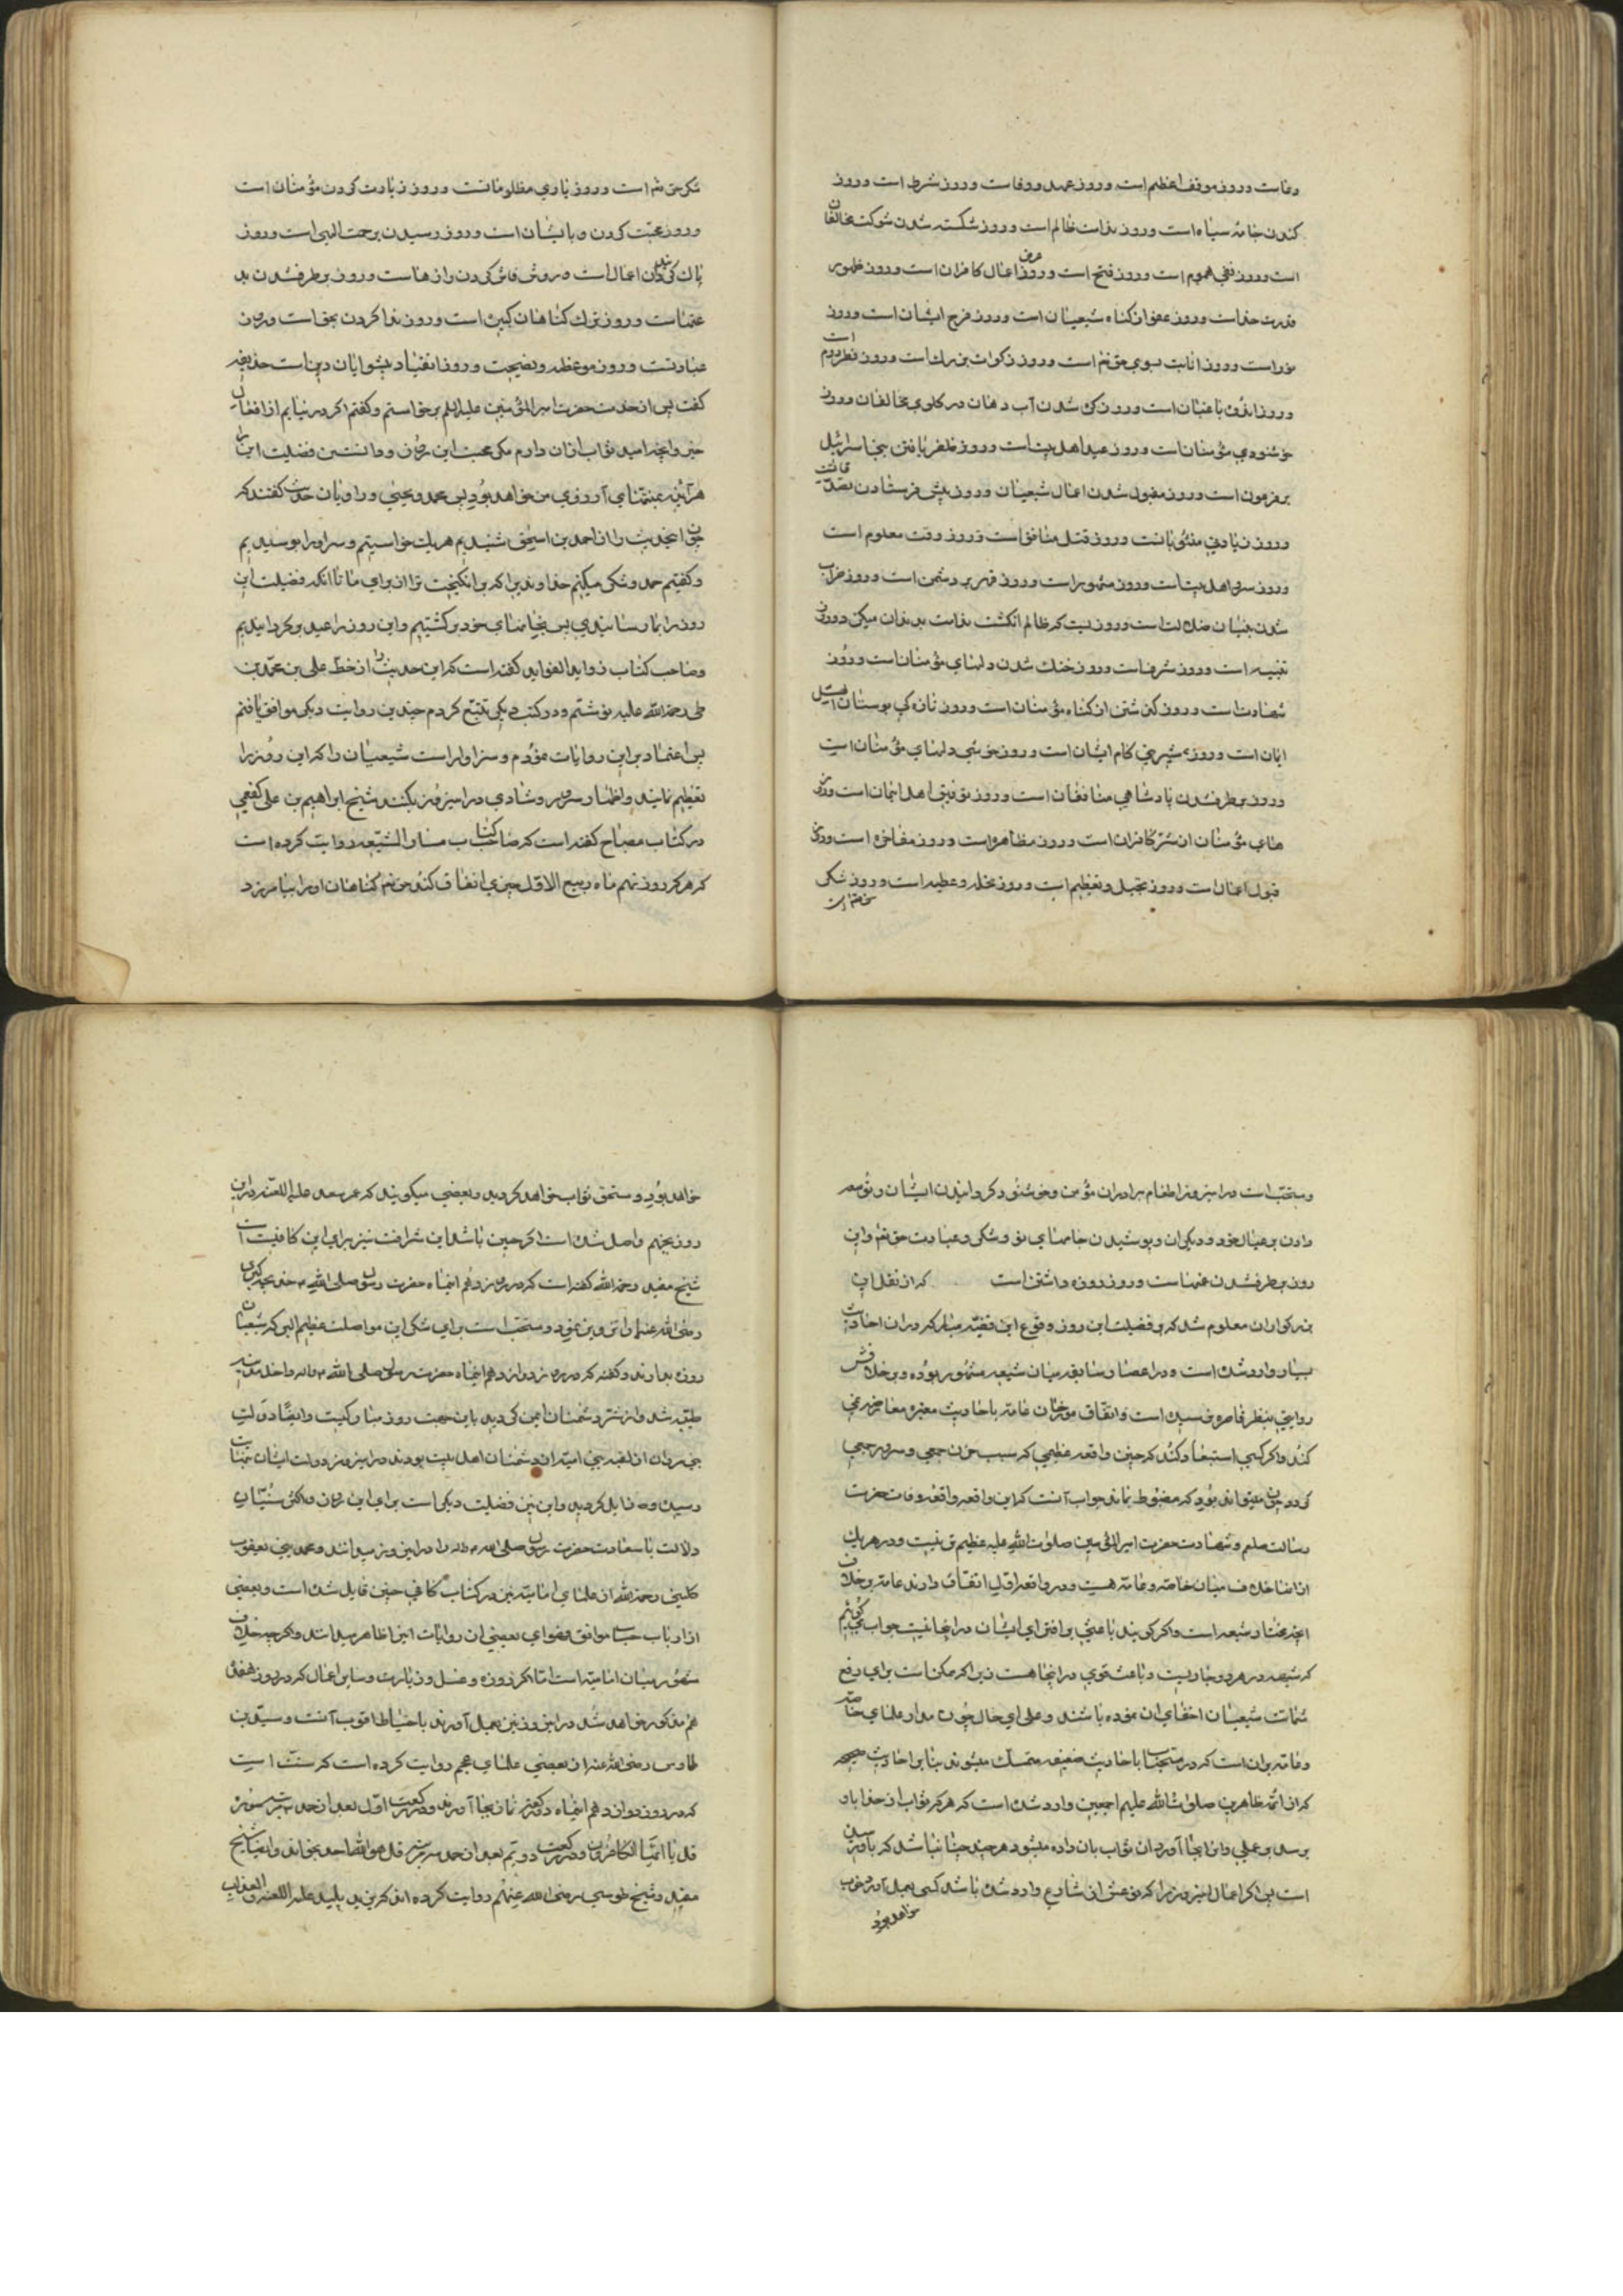 دعاست و روز موقف اعظم است و روز عهد و وفاست و روز شرط است و روز
کندن جامه سیاه است و روز ندامت ظالم است و روز شکسته شدن شوکت مخالفان
است و روز نفی هموم است و روز فتح است و روز عرض اعمال کافران است و روز ظهور
قدرت خداست و روز عفو از گناه شیعیان است و روز فرج ایشان است و روز
است و روز انابت بسوی حق تعم است و روز زکوات بزرك است و روز فطر دوم است
و روز اندوه باغیان است و روز گره شدن آب دهان در گلوی مخالفان و روز
خوشنودی مؤمنان است و روز عید اهل بیت است و روز ظفر یافتن بنی اسرائیل
بر فرعون است و روز مقبول شدن اعمال شیعیان و روز پیش فرستادن تصدقات
و روز زیادتی مثوباتست و روز قتل منافق است و روز وقت معلوم است
و روز سرور اهل بیت است و روز مشهود است و روز قهر بر دشمن است و روز خراب
شدن بنیان ضلالت است و روزیست که ظالم انگشت ندامت بدندان میگزد و روز
تنبیه است و روز شرفاست و روز خنك شدن دلهای مؤمنان است و روز
شهادت است و روز گذشتن از گناه مؤمنان است و روز تازه گی بوستان اهل
ایمان است و روز شیرینی کام ایشان است و روز خوشی دلهای مؤمنان است
و روز برطرف شدن پادشاهی منافقان است و روز توفیق اهل ایمان است و روز
های مؤمنان از شر کافران است و روز مظاهره است و روز مفاخره است و روز
قبول اعمال است و روز تبجیل و تعظیم است و روز نحله و عطیه است و روز شکر
حق تعم است
شکر حق تعم است و روز یاری مظلومانست و روز زیارت کردن مؤمنان است
و روز محبت کردن با ایشان است و روز رسیدن برحمت الهی است و روز
پاك گردانیدن اعمال است و روز فاش کردن رازهاست و روز برطرف شدن بد
عتهاست و روز ترك گناهان کبیره است و روز ندا کردن بحق است و روز
عبادتست و روز موعظه و نصیحت و روز انقیاد پیشوایان دین است حذیفه
گفت پس از خدمت حضرت امیر المؤمنین علیه السلم برخواستم و گفتم اگر در نیابم از افعال
خیر و آنچه امید ثواب از آن دارم مگر محبت این روز و دانستن فضلیت این را
هر آینه منتهای آرزوی من خواهد بود پس محمد و یحیی و راویان حدیث گفتند که
چون این حدیث را از احمد بن اسحق شنیدیم هر یك خواستیم و سر او را بوسیدیم
و گفتیم حمد و شکر میکنیم خداوندیرا که بر انگیخت ترا از برای ما تا آنکه فضیلت این
روز را بما رسانیدی پس بخانهای خود برگشتیم و این روز را عید گردانیدیم
و صاحب کتاب زواید الفواید گفته است که این حدیث را از خط علی بن محمد بن
طی رحمة الله علیه نوشتم و در کتب دیگر تتبع کردم چندین روایت دیگر موافق یافتم
پس اعتماد بر این روایات نمودم و سزاوار است شیعیان را که این روز را
تعظیم نمایند و اظهار سرور و شادی در این روز بکنند و شیخ ابراهیم بن علی کفعمی
در کتاب مصباح گفته است که صاحب کتاب مسار الشیعه روایت کرده است
که هر که روز نهم ماه ربیع الاول چیزی انفاق کند حق تعم گناهان او را بیامرزد
و مستحب است در این روز اطعام برادران مؤمن و خوشنود گردانیدن ایشان و توسعه
دادن بر عیال خود و دیگران و پوشیدن جامهای نو و شکر و عبادت حق تعم و این
روز برطرف شدن غمهاست و روز روزه داشتن است که از نقل این
بزرگواران معلوم شد که بر فضیلت این روز و وقوع این قضیه مبارکه در آن احادیث
بسیار وارد شده است و در اعصار سابقه میان شیعه مشهور بوده و بر خلافش
روایتی بنظر قاصر نرسیده است و اتفاق مورخان عامه با احادیث معتبره معارضه نمی
کند و اگر کسی استبعاد کند که چنین واقعه عظیمی که سبب حزن جمعی و سرور جمعی
گردد چون میتواند بود که مضبوط نماند جواب آنست که این واقعه از واقعه وفات حضرت
رسالت صلعم و شهادت حضرت امیر المؤمنین صلوات الله علیه عظیم تر نیست و در هر یك
از آنها خلاف میان خاصه و عامه هست و در واقعه اول اتفاق دارند عامه بر خلاف
آنچه مختار شیعه است و اگر گویند باعثی بر افترای ایشان در آنجا نیست جواب میگوئیم
که شبهه در هر دو جاریست و باعث قوی در اینجا هست زیرا که ممکن است برای دفع
شماتت شیعیان اخفای آن نموده باشند و علی ای حال چون مدار علمای خاصه
و عامه بر آن است که در مستحبات باحادیث ضعیفه متمسك میشوند بنا بر احادیث صحیحه
که از ائمه طاهرین صلوات الله علیهم اجمعین وارد شده است که هر که ثواب از خدا باو
برسد بر عملی و آنرا بجا آورد آن ثواب بآن داده میشود هر چند چنان نباشد که باو رسیده
است پس اگر اعمال این روز را که نوعش از شارع وارد شده باشد کسی بعمل آورد خوب
خواهد بود
خواهد بود و مستحق ثواب خواهد گردید و بعضی میگویند که عمر سعد علیه اللعنه در این
روز بجهنم واصل شده است اگر چنین باشد این شرافت نیز برای این کافیست
شیخ مفید رحمة الله گفته است که در روز دهم این ماه حضرت رسول صلی الله خدیجه کبری
رضی الله عنها را تزویج نمود و مستحب است برای شکر این مواصلت عظیم الهی که شیعیان
روزه بدارند و گفته که در روز دوازدهم این ماه حضرت رسول صلی الله و اله داخل مدینه
طیبه شد و از شر دشمنان ایمن گردید باین جهت روز مبارکیست و ایضا دولت
بنی مروان از لعنهٔ بنی امیه از دشمنان اهل بیت بودند در این روز دولت ایشان بنهایت
رسیده و زایل گردید و این نیز فضلیت دیگر است برای این روز و اکثر سنیان
ولادت باسعادت حضرت رسول صلی الله علیه و اله را در این روز میدانند و محمد بن یعقوب
کلینی رحمة الله از علمای امامیه نیز در کتاب کافی چنین قایل شده است و بعضی
از ارباب حساب موافق فتوای بعضی از روایات این را ظاهر میدانند و اگر چه خلاف
مشهور میان امامیه است اما اگر روزه و غسل و زیارت و سایر اعمال که در روز هفدهم
هم مذکور خواهد شد در این روز نیز بعمل آورند باحتیاط اقرب آنست و سید بن
طاوس رضی الله عنه از بعضی علمای عجم روایت کرده است که سنت است
که در روز دوازدهم این ماه دو رکعت نماز بجا آورند و در رکعت اول بعد از حمد سه مرتبه سوره
قل یا ایها الکافرون و در رکعت دویم بعد از حمد سه مرتبه قل هو الله احد بخواند و ایضا شیخ
مفید و شیخ طوسی رضی الله عنهم روایت کرده اند که یزید پلید علیه اللعنه و العذاب